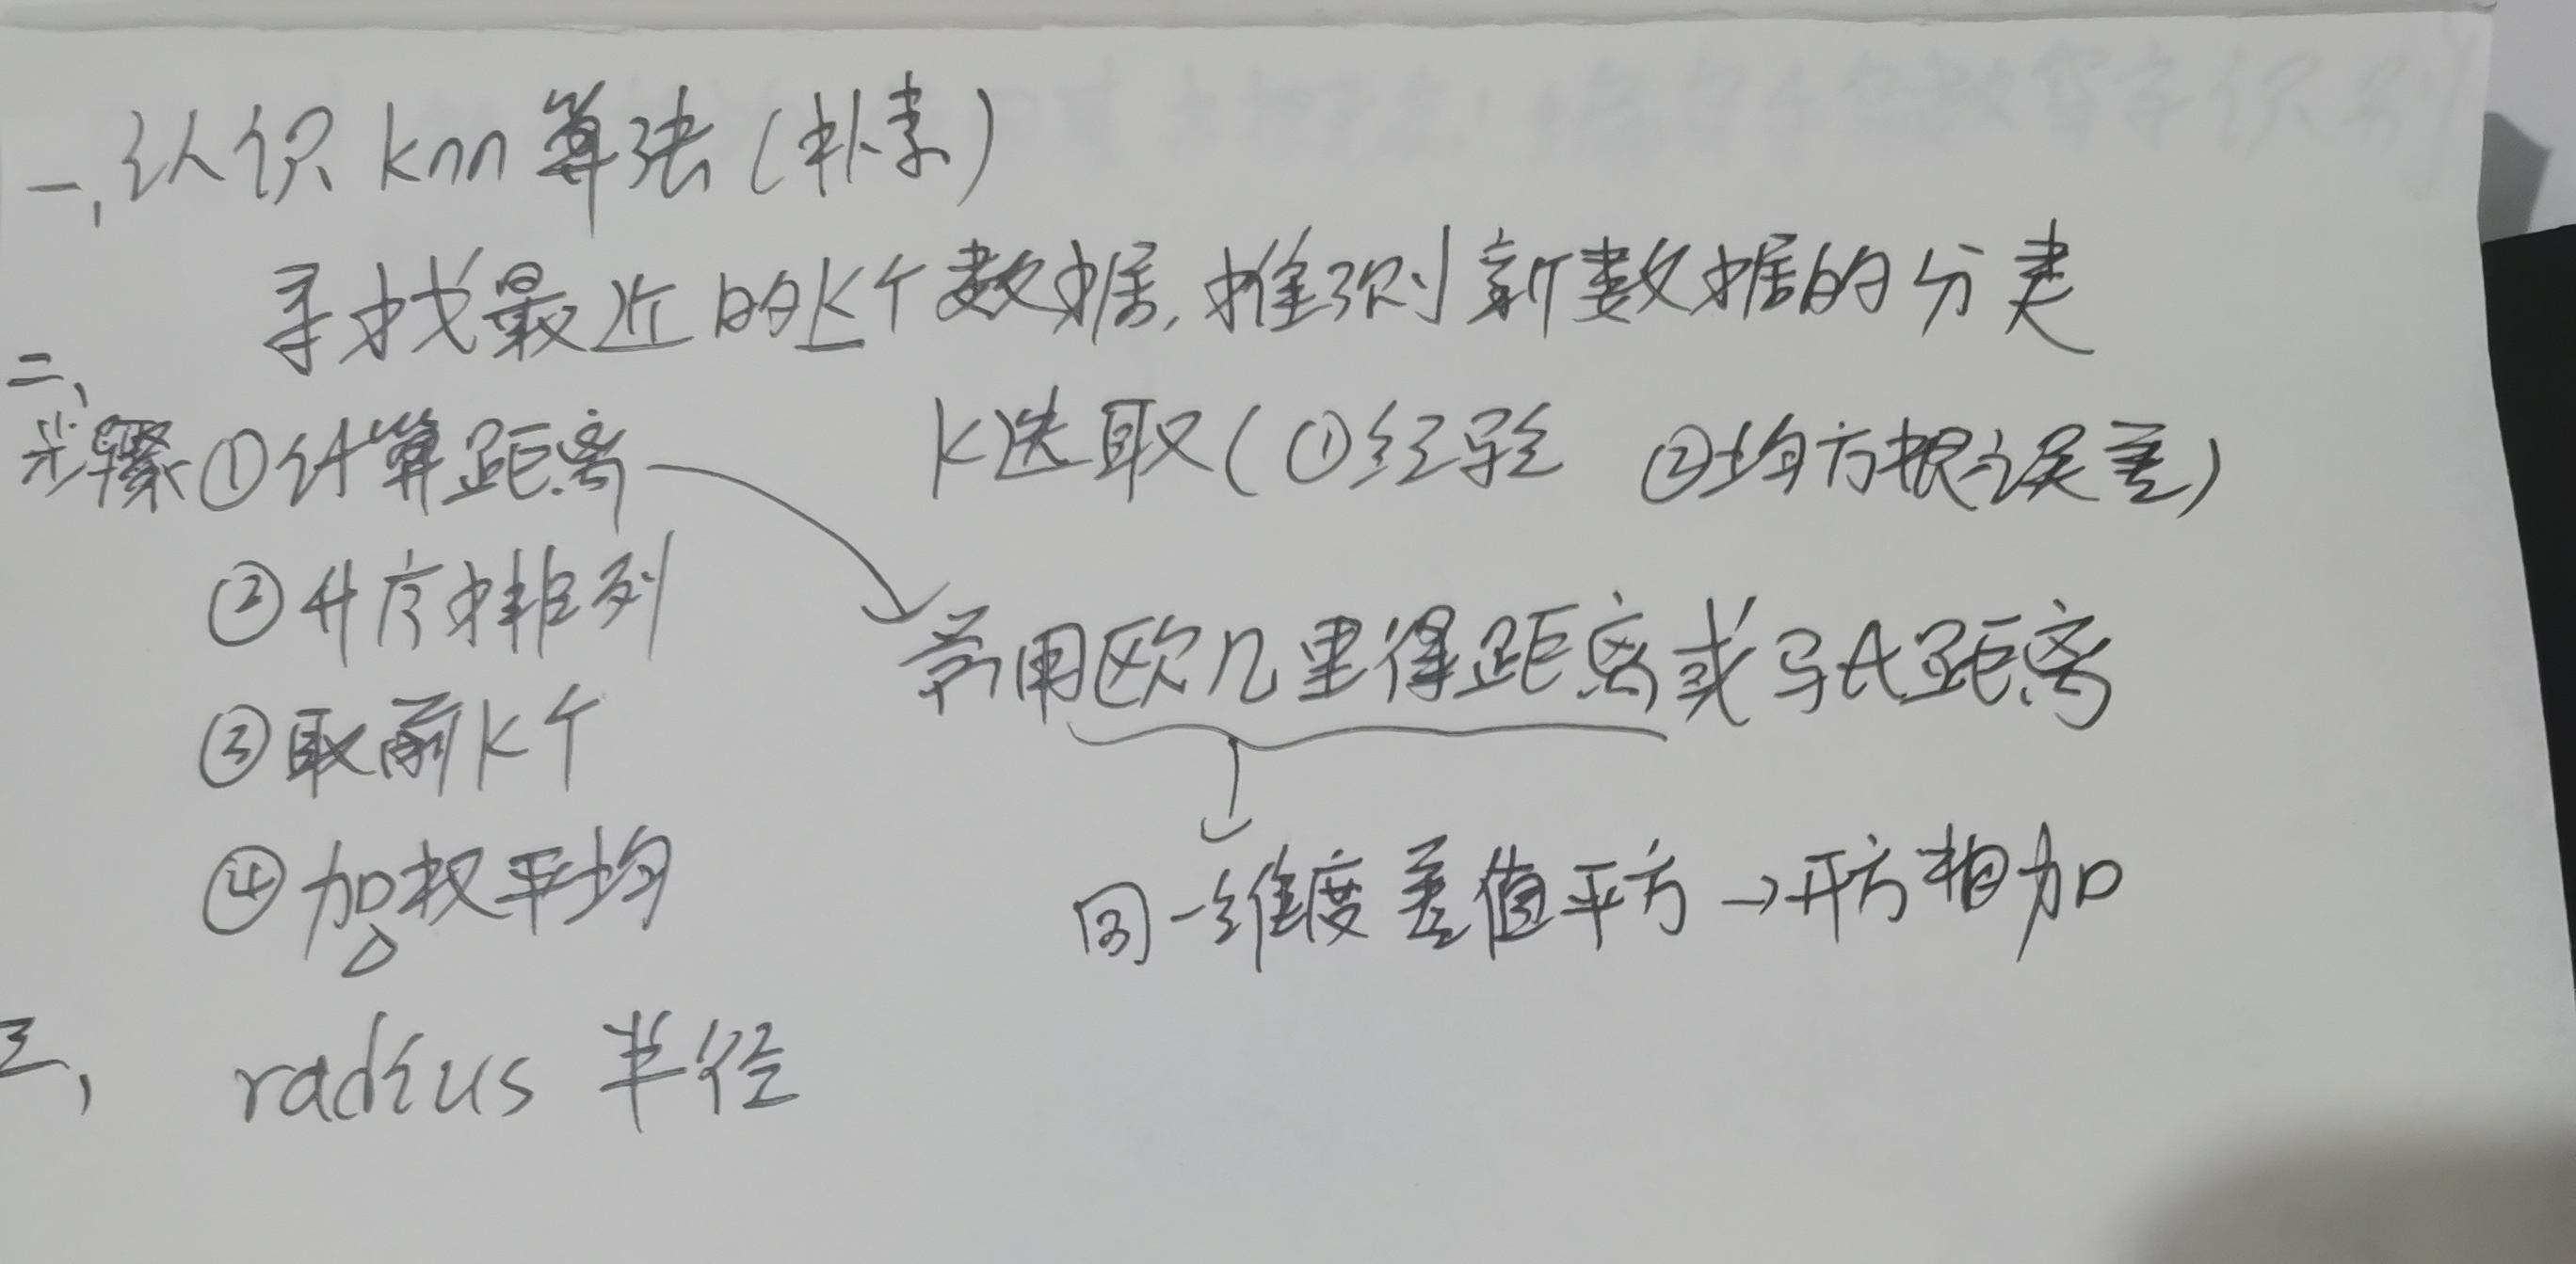 一、认识knn算法(朴素)
寻找最近的K个数据,推测新数据的分类
二、
步骤①计算距离
K选取(①经验 ②均方根误差)
②升序排列
常用欧几里得距离或马氏距离
③取前K个
④加权平均
同一维度差值平方→开方相加
三、radius 半径